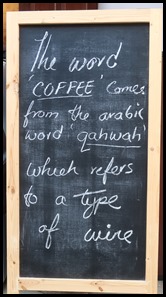 The word
'COFFEE' comes
from the arabic
word 'qahwah'
which refers
to a type
of wine